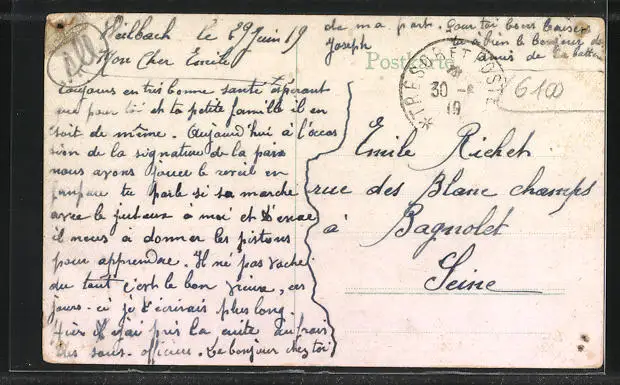 Weilbach le 29 Juin 19
Mon Cher Emile
toujours en très bonne santé espérant
que pour toi et ta petite famille il en
soit de même. Aujourd'hui à l'occa
sion de la signature de la paix
nous avons jouer le reveil en
fanfare tu parle si sa marche
avec le à moi et
il nous à donner les pistons
pour apprendre. Il né pas vache
du tout c'est le bon vieux, ces
jours-ci je t'écrirais plus long.
Hier j'ai pris la cuite au frais
des sous-officier. Le bonjour chez toi
de ma part. Pour toi bons baiser
Joseph
tu à bien le bonjour de
amis de la
Postkarte
TRESOR ET POSTE
30 - 6
19
6100
Emile Richet
rue des Blanc champs
à Bagnolet
Seine